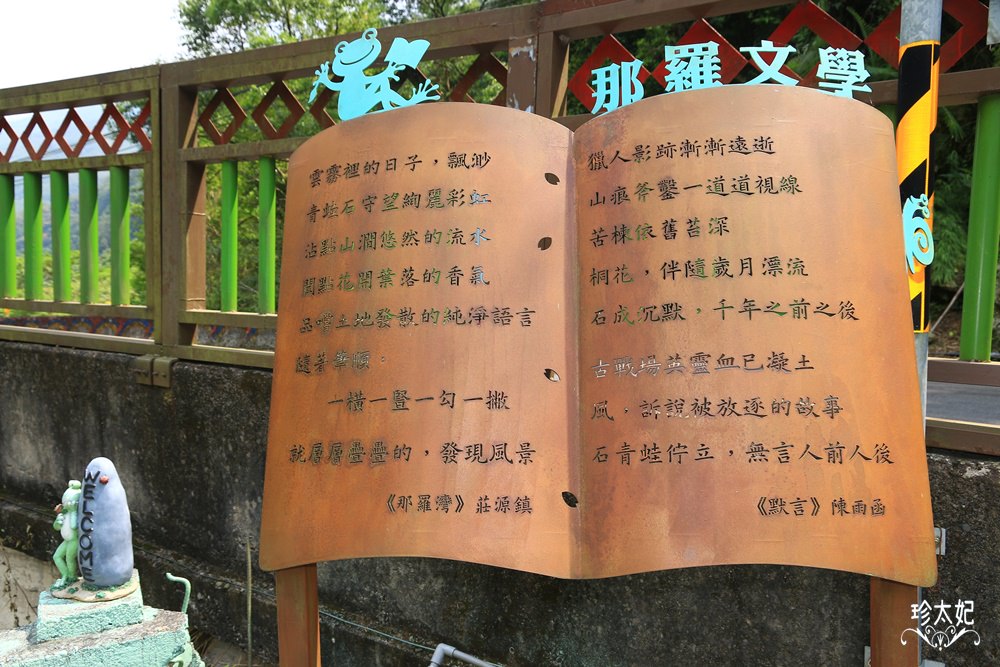 那羅文學
雲霧裡的日子，飄渺
青蛙石守望絢麗彩虹
沾點山澗悠然的流水
聞點花開葉落的香氣
品嚐土地發散的純淨語言
隨著筆順，
一橫一豎一勾一撇
就層層疊疊的，發現風景
《那羅灣》莊源鎮
獵人影跡漸漸遠逝
山痕斧鑿一道道視線
苦楝依舊苔深
桐花，伴隨歲月漂流
石成沉默，千年之前之後
古戰場英靈血已凝土
風，訴說被放逐的故事
石青蛙佇立，無言人前人後
《默言》陳雨函
WELCOME
珍太妃